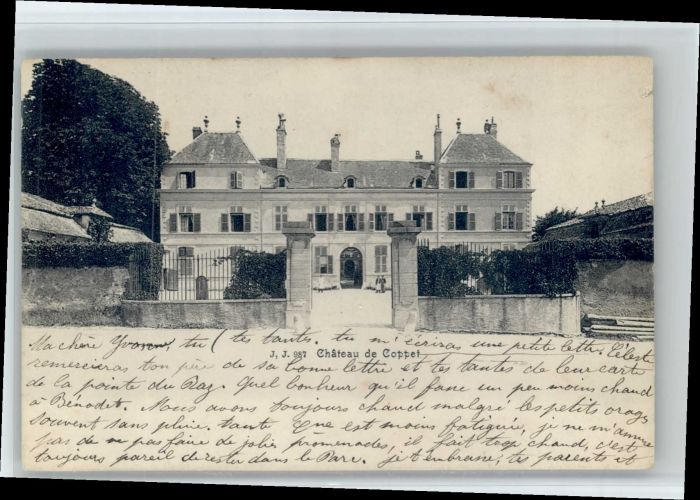 Ma chère Yvonne, tu ( tes tantes. tu m'écriras une petite lettre. C'est
J. J. 987 Château de Coppet
remercieras ton père de sa bonne lettre et tes tantes de leur carte
de la pointe du Raz. Quel bonheur qu'il fasse un peu moins chaud
à Bénodet. Nous avons toujours chaud malgré les petits orages
souvent sans pluie. tante est moins fatiguée, je ne m'amuse
pas de ne pas faire de jolies promenades, il fait trop chaud, c'est
toujours pareil de rester dans le Parc. je t'embrasse, tes parents et